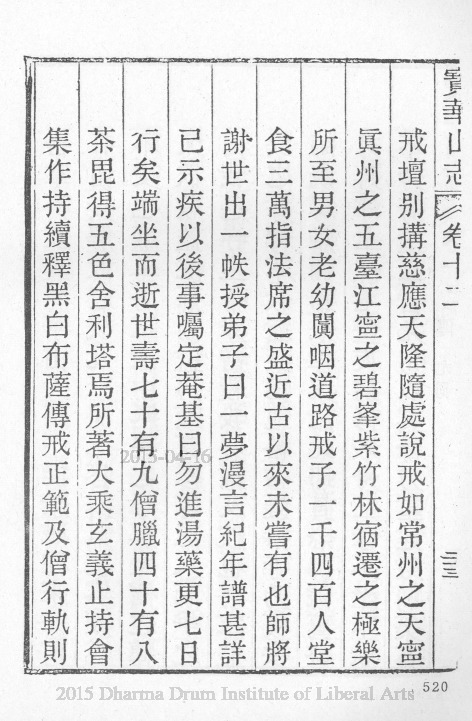 寶華山志 卷十二
三三
戒壇別搆慈應天隆隨處說戒如常州之天寍
眞州之五臺江寍之碧峯紫竹林宿遷之極樂
所至男女老幼闐咽道路戒子一千四百人堂
食三萬指法席之盛近古以來未嘗有也師將
謝世出一帙授弟子曰一夢漫言紀年譜甚詳
已示疾以後事囑定菴基曰勿進湯藥更七日
行矣端坐而逝世壽七十有九僧臘四十有八
茶毘得五色舍利塔焉所著大乘玄義止持會
集作持續釋黑白布薩傳戒正範及僧行軌則
2015-04-16
520
2015 Dharma Drum Institute of Liberal Arts